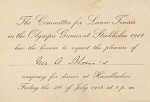 The Committee for Lawn Tennis
in the Olympic Games at Stockholm 1912
has the honour to request the pleasure of
Geo. A.
company for dinner at Hasselbacken
Friday the 5th of July 1912 at 7 p. m.